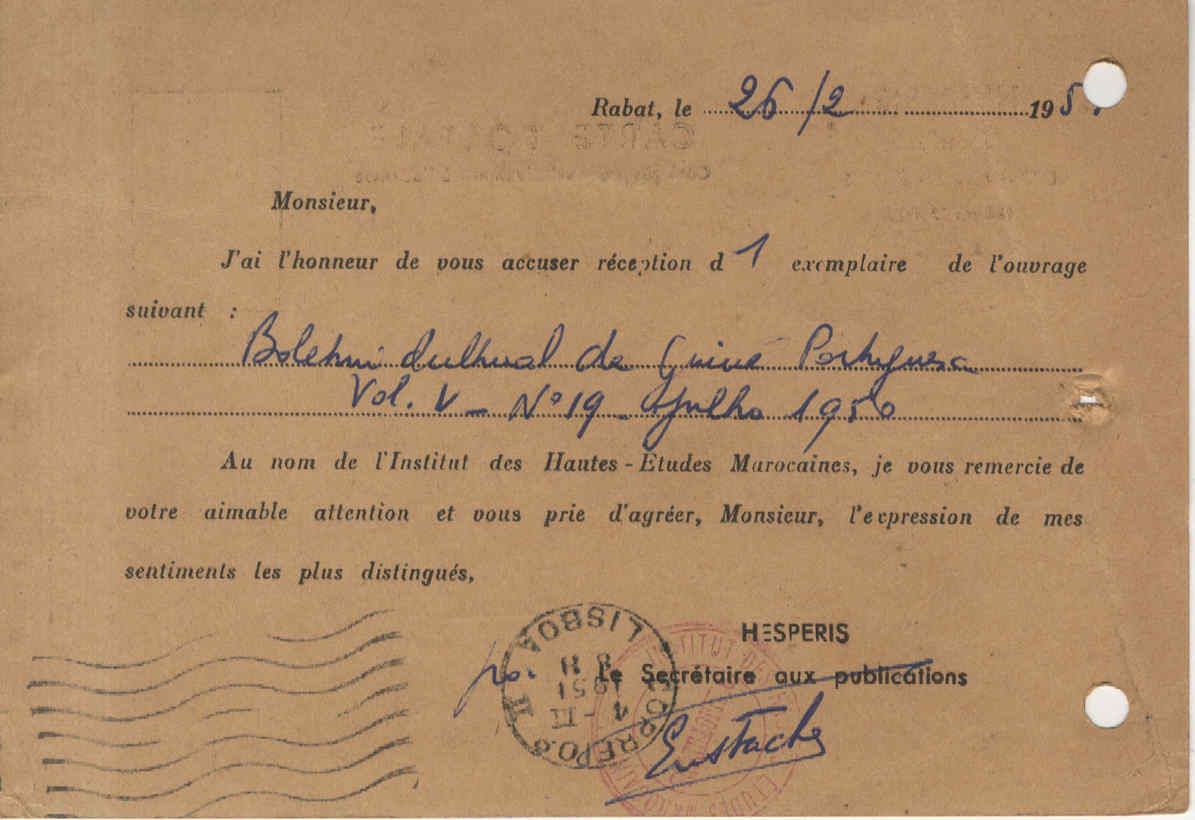 Rabat, le 26/2 195
Monsieur,
J'ai l'honneur de vous accuser réception d 1 exemplaire de l'ouvrage
suivant :
Boletim Cultural da Guiné Portuguesa
Vol. V - N° 19 - Julho 1950
Au nom de l'Institut des Hautes-Etudes Marocaines, je vous remercie de
votre aimable attention et vous prie d'agréer, Monsieur, l'expression de mes
sentiments les plus distingués,
HESPERIS
po. Le Secrétaire aux publications
Eustache
LISBOA
8 H
1951
4 - II
CORREIOS
INSTITUT DES
ETUDES MAROCAINES